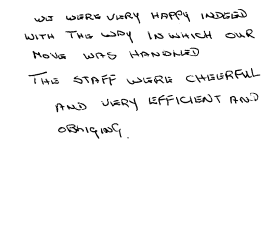 WE WERE VERY HAPPY INDEED
WITH THE WAY IN WHICH OUR
MOVE WAS HANDLED
THE STAFF WERE CHEERFUL
AND VERY EFFICIENT AND
OBLIGING.